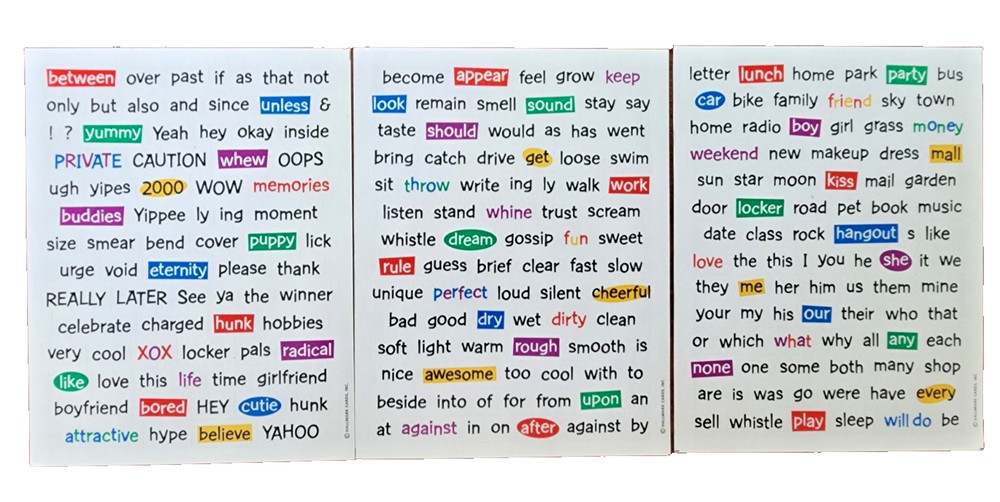 between over past if as that not
only but also and since unless &
! ? yummy Yeah hey okay inside
PRIVATE CAUTION whew OOPS
ugh yipes 2000 WOW memories
buddies Yippee ly ing moment
size smear bend cover puppy lick
urge void eternity please thank
REALLY LATER See ya the winner
celebrate charged hunk hobbies
very cool XOX locker pals radical
like love this life time girlfriend
boyfriend bored HEY cutie hunk
attractive hype believe YAHOO
© HALLMARK CARDS, INC.
become appear feel grow keep
look remain smell sound stay say
taste should would as has went
bring catch drive get loose swim
sit throw write ing ly walk work
listen stand whine trust scream
whistle dream gossip fun sweet
rule guess brief clear fast slow
unique perfect loud silent cheerful
bad good dry wet dirty clean
soft light warm rough smooth is
nice awesome too cool with to
beside into of for from upon an
at against in on after against by
© HALLMARK CARDS, INC.
letter lunch home park party bus
car bike family friend sky town
home radio boy girl grass money
weekend new makeup dress mall
sun star moon kiss mail garden
door locker road pet book music
date class rock hangout s like
love the this I you he she it we
they me her him us them mine
your my his our their who that
or which what why all any each
none one some both many shop
are is was go were have every
sell whistle play sleep will do be
© HALLMARK CARDS, INC.